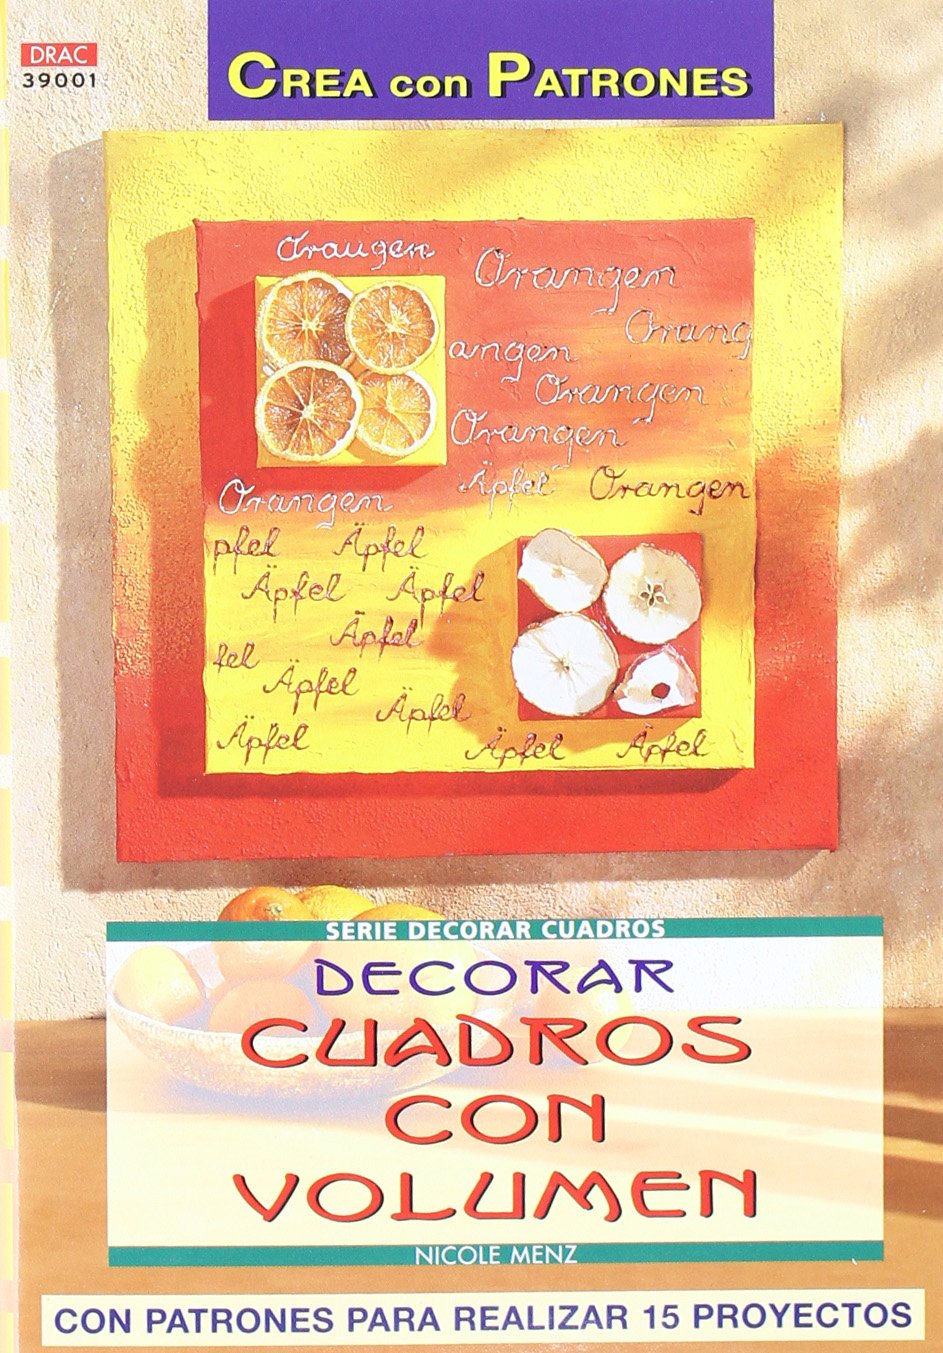 DRAC
39001
CREA con PATRONES
Oraugen
Orangen
Orang
angen
Orangen
Orangen
Äpfel
Orangen
Orangen
pfel
Äpfel
Äpfel
Äpfel
Äpfel
fel
Äpfel
Äpfel
Äpfel
Äpfel
Äpfel
SERIE DECORAR CUADROS
DECORAR
CUADROS
CON
VOLUMEN
NICOLE MENZ
CON PATRONES PARA REALIZAR 15 PROYECTOS